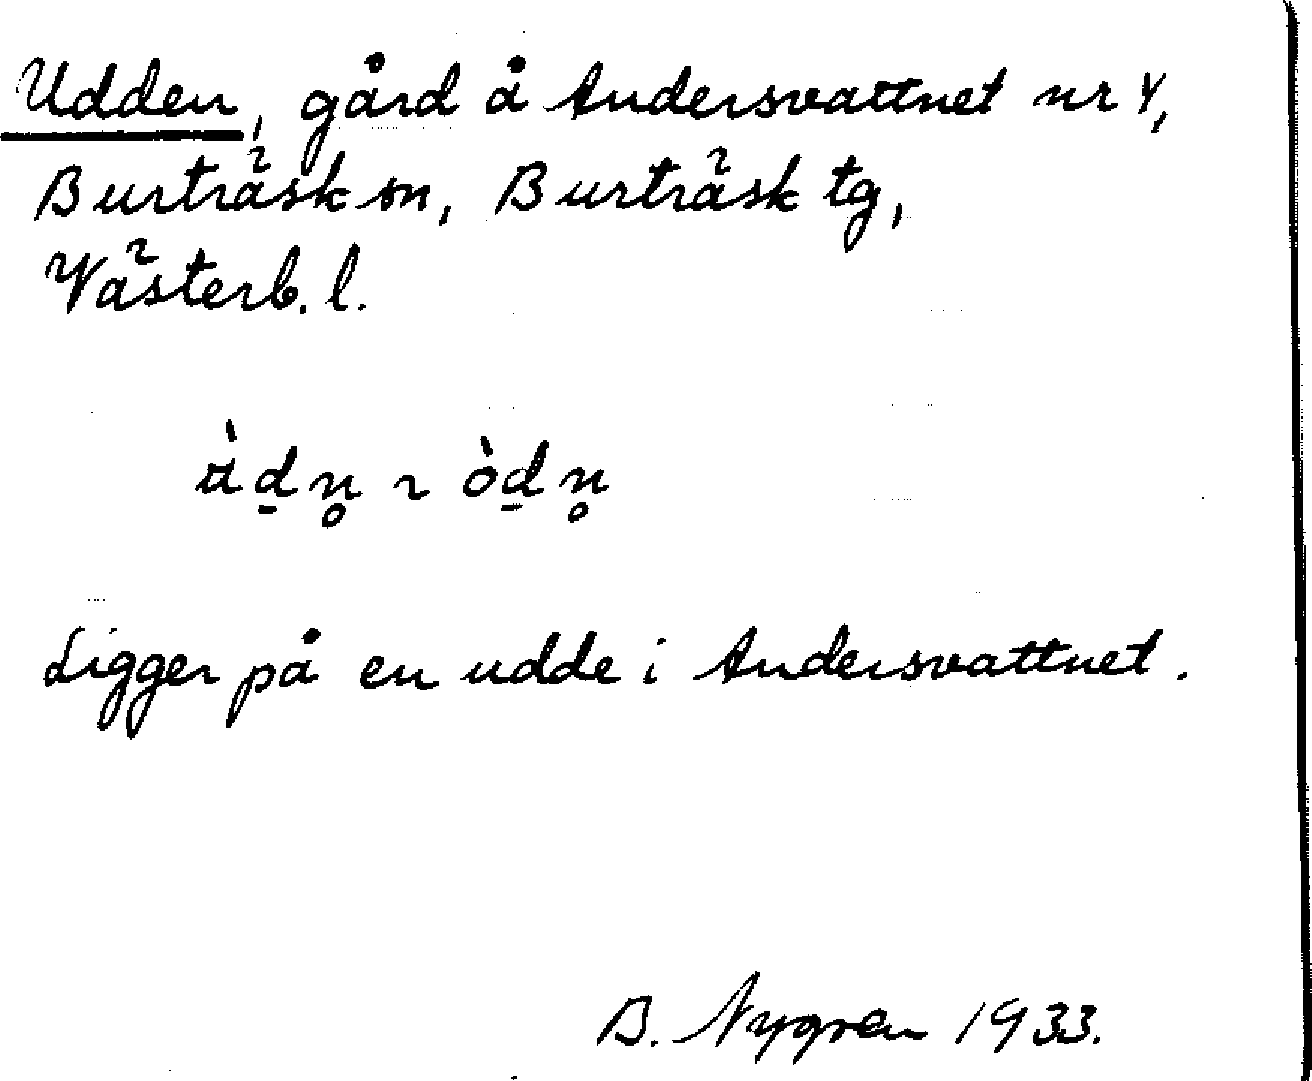 Udden, gård å Andersvattnet nr 4,
Burträsk sn, Burträsk tg,
Västerb. l.
òd̠n̥
Ligger på en udde i Andersvattnet.
B. Nygren 1933.